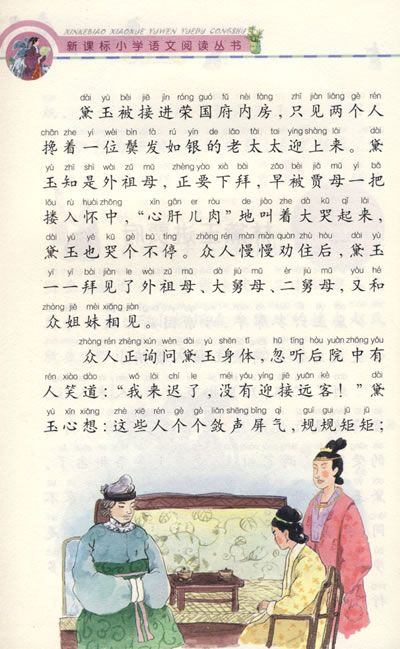 XINKEBIAO XIAOXUE YUWEN YUEDU CONGSHU
新课标小学语文阅读丛书
dài yù bèi jiē jìn róng guó fǔ nèi fáng zhǐ jiàn liǎng gè rén
黛玉被接进荣国府内房，只见两个人
chān zhe yí wèi bìn fà rú yín de lǎo tài tai yíng shàng lái dài
搀着一位鬓发如银的老太太迎上来。黛
yù zhī shì wài zǔ mǔ zhèng yào xià bài zǎo bèi jiǎ mǔ yì bǎ
玉知是外祖母，正要下拜，早被贾母一把
lǒu rù huái zhōng xīn gān er ròu de jiào zhe dà kū qǐ lái
搂入怀中，“心肝儿肉”地叫着大哭起来，
dài yù yě kū gè bù tíng zhòng rén màn màn quàn zhù hòu dài yù
黛玉也哭个不停。众人慢慢劝住后，黛玉
yī yī bài jiàn le wài zǔ mǔ dà jiù mǔ èr jiù mǔ yòu hé
一一拜见了外祖母、大舅母、二舅母，又和
zhòng jiě mèi xiāng jiàn
众姐妹相见。
zhòng rén zhèng xún wèn dài yù shēn tǐ hū tīng hòu yuàn zhōng yǒu
众人正询问黛玉身体，忽听后院中有
rén xiào dào wǒ lái chí le méi yǒu yíng jiē yuǎn kè dài
人笑道：“我来迟了，没有迎接远客！”黛
yù xīn xiǎng zhè xiē rén gè gè liǎn shēng bǐng qì guī guī jǔ jǔ
玉心想：这些人个个敛声屏气，规规矩矩；